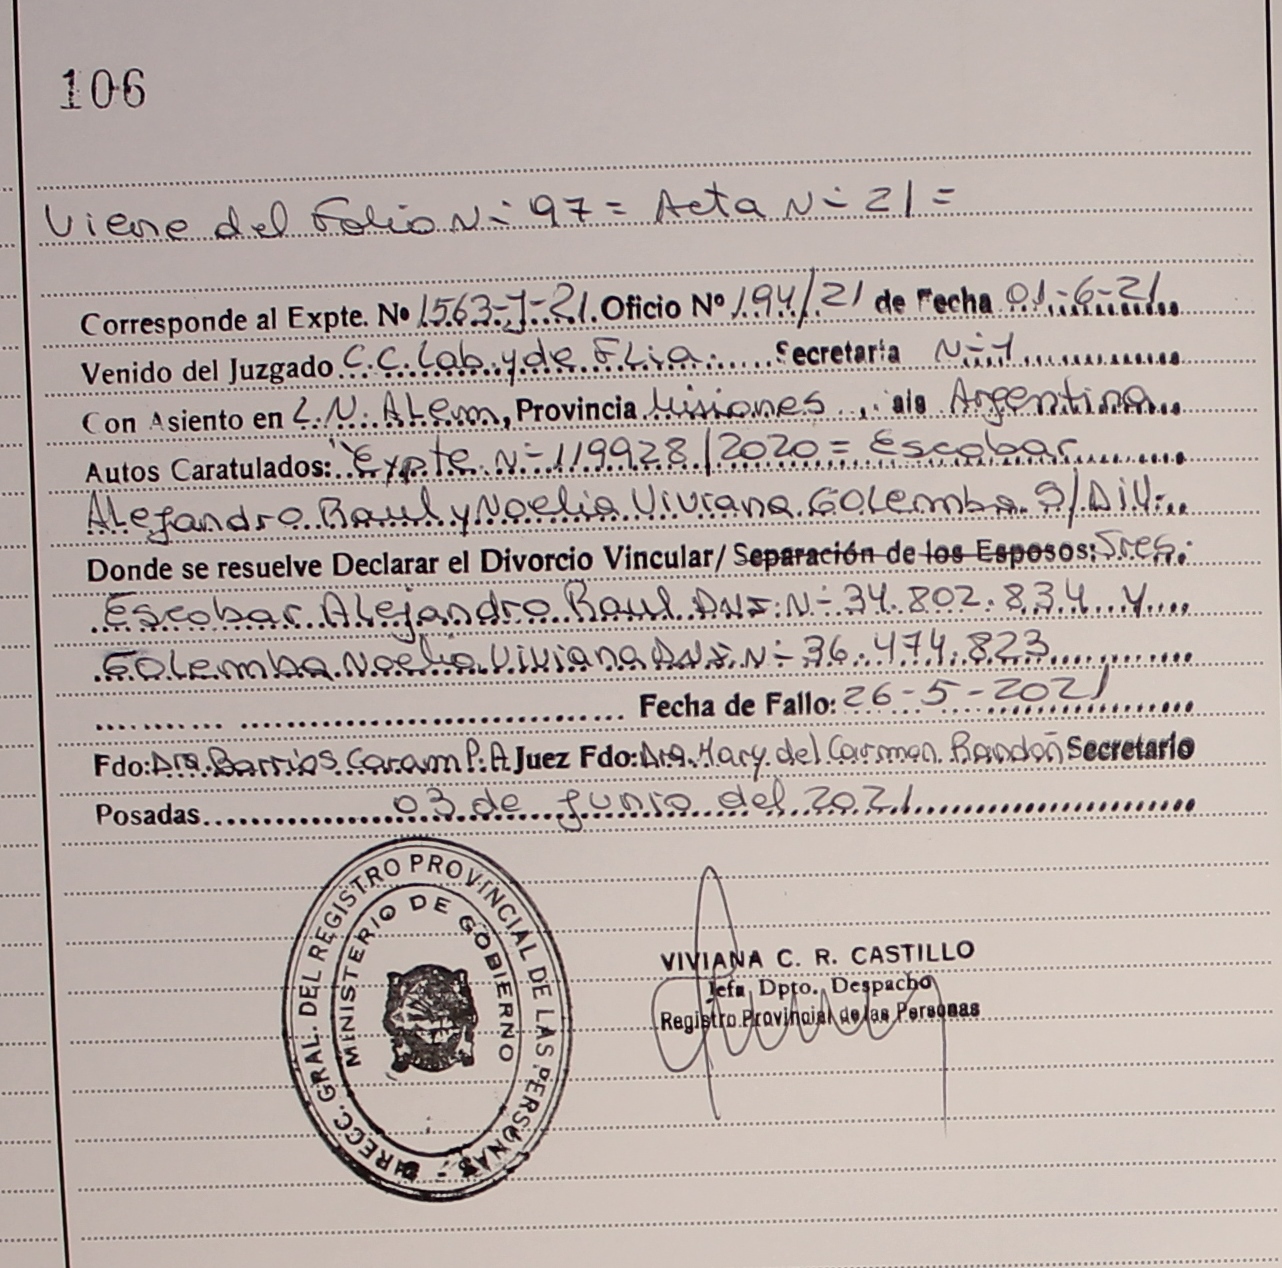 106
Viene del Folio N- 97 = Acta N- 21 =
Corresponde al Expte. Nº 1563-J-21. Oficio Nº 194/21 de Fecha 01-6-21
Venido del Juzgado C.C. Lab. y de Flia. Secretaria N-1
Con Asiento en L.N. Alem, Provincia Misiones, Argentina
Autos Caratulados: "Expte N- 119928/2020 = Escobar
Alejandro Raul y Noelia Viviana Golemba S/Div.
Donde se resuelve Declarar el Divorcio Vincular/ Separación de los Esposos: Sres.
Escobar Alejandro Raul DNI: N- 34.802.834 y
Golemba Noelia Viviana DNI. N- 36.474.823
Fecha de Fallo: 26-5-2021
Fdo: Dra. Barrios Caram P.A Juez Fdo: Dra. Mary del Carmen Secretario
Posadas 03 de junio del 2021
DIRECC. GRAL. DEL REGISTRO PROVINCIAL DE LAS PERSONAS
MINISTERIO DE GOBIERNO
VIVIANA C. R. CASTILLO
Jefa Dpto. Despacho
Registro Provincial de las Personas